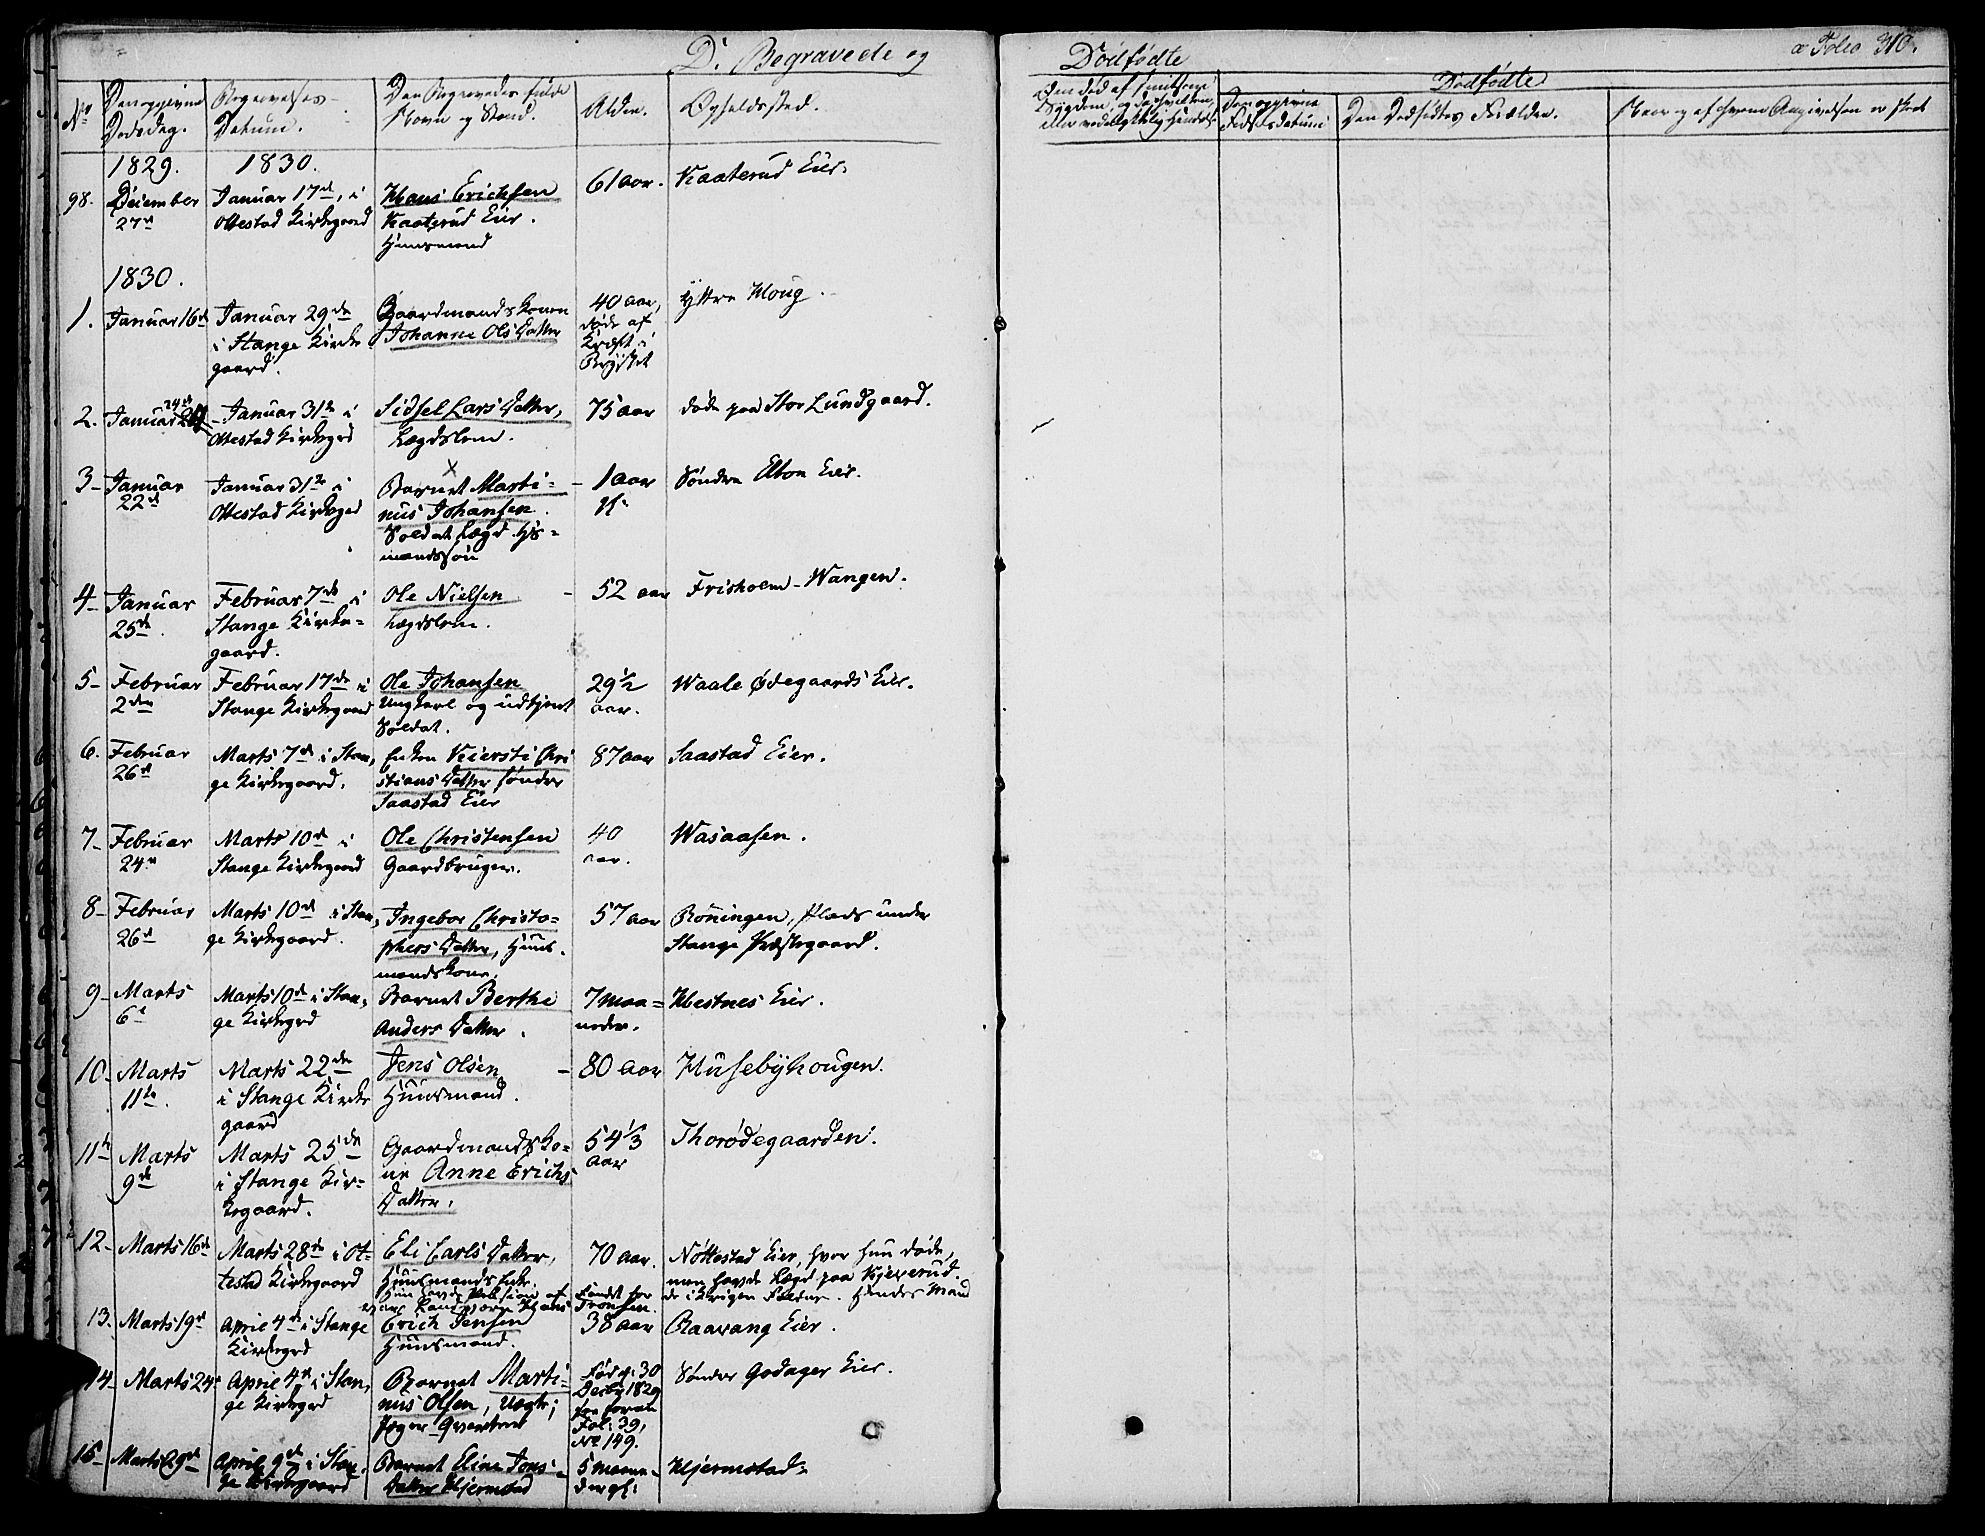 D. Begravede og Dödfödte
a Folio 310.
Dödfödte
No
Den opgivne Dödsdag.
Begravelses-Datum.
Den Begravedes fulde Navn og Stand.
Alder.
Opholdssted.
Den opgivne Födselsdatum
Den Dödfödtes Forældre.
Naar og af hvem Angivelsen er skeet
1829. 1830.
98. December 27de
Januar 17de, i Ottestad Kirkegaard
Hans Erichsen Kaaterud Eier. Huusmand
61 aar.
Kaaterud Eier.
1830.
1. Januar 16de
Januar 29de i Stange Kirkegaard.
Gaardmandskonen Johanne Ols Datter
40 aar, døde af Kræft i Brystet
Yttre Houg.
2. Januar 24de
Januar 31te i Ottestad Kirkegrd
Sidsel Lars Datter, Lægdslem.
75 aar
døde paa Stor Lundgaard.
3 Januar 22de
Januar 31te i Ottestad Kirkegrd
Barnet Martinus Johansen. Soldat Lægd. Hsmandssøn
1 aar gl.
Söndre Ebon Eier.
4 Januar 25de
Februar 7de i Stange Kirkegaard.
Ole Nielsen Lægdslem.
52 aar
Frisholm-Wangen.
5 Februar 2den
Februar 17de i Stange Kirkegaard
Ole Johansen Ungkarl og udtjent Soldat.
29½ aar.
Waale Ødegaards Eier.
6. Februar 26de
Marts 7de i Stange Kirkegaard.
Enken Kiersti Christians Datter søndre Saastad Eier
87 aar
Saastad Eier.
7 Februar 24de
Marts 10de i Stange Kirkegaard
Ole Christensen Gaardbruger.
40 aar.
Wasaasen.
8 Februar 26de
Marts 10de i Stange Kirkegaard.
Ingebor Christophers Datter, Huusmandskone.
57 aar
Böningen, Plads under Stange Præstegaard.
9 Marts 6te
Marts 10de i Stange Kirkegrd
Barnet Berthe Anders Datter.
7 maaneder.
Hestnes Eier.
10 Marts 11te.
Marts 22de i Stange Kirkegaard
Jens Olsen Huusmand.
80 aar
Husebyhougen.
11te Marts 9de
Marts 25de i Stange Kirkegaard.
Gaardmandskone Anne Erichs Datter.
54⅓ aar
Thorødegaarden.
12 Marts 16de
Marts 28de i Ottestad Kirkegaard
Eli Carls Datter, Huusmands Enke.
70 aar.
Nöttestad Eier, hvor hun døde, men havde Lægd paa Kjeverud. Hendes Mand
13. Marts 19de
April 4de i Stange Kirkegrd
Erich Jensen Huusmand.
38 aar
Raavang Eier.
14 Marts 24de
April 4de i Stange Kirkegrd
Barnet Martinus Olsen,
Föd d: 30 Decbr 1829 foran Fol: 39, No 149.
Sönder Godager Eier.
15 Marts 29de
April 9de i Stange Kirkegaard
Barnet Eline Jons Datter Hjermstad
5 Maaneder gl:
Hjermstad